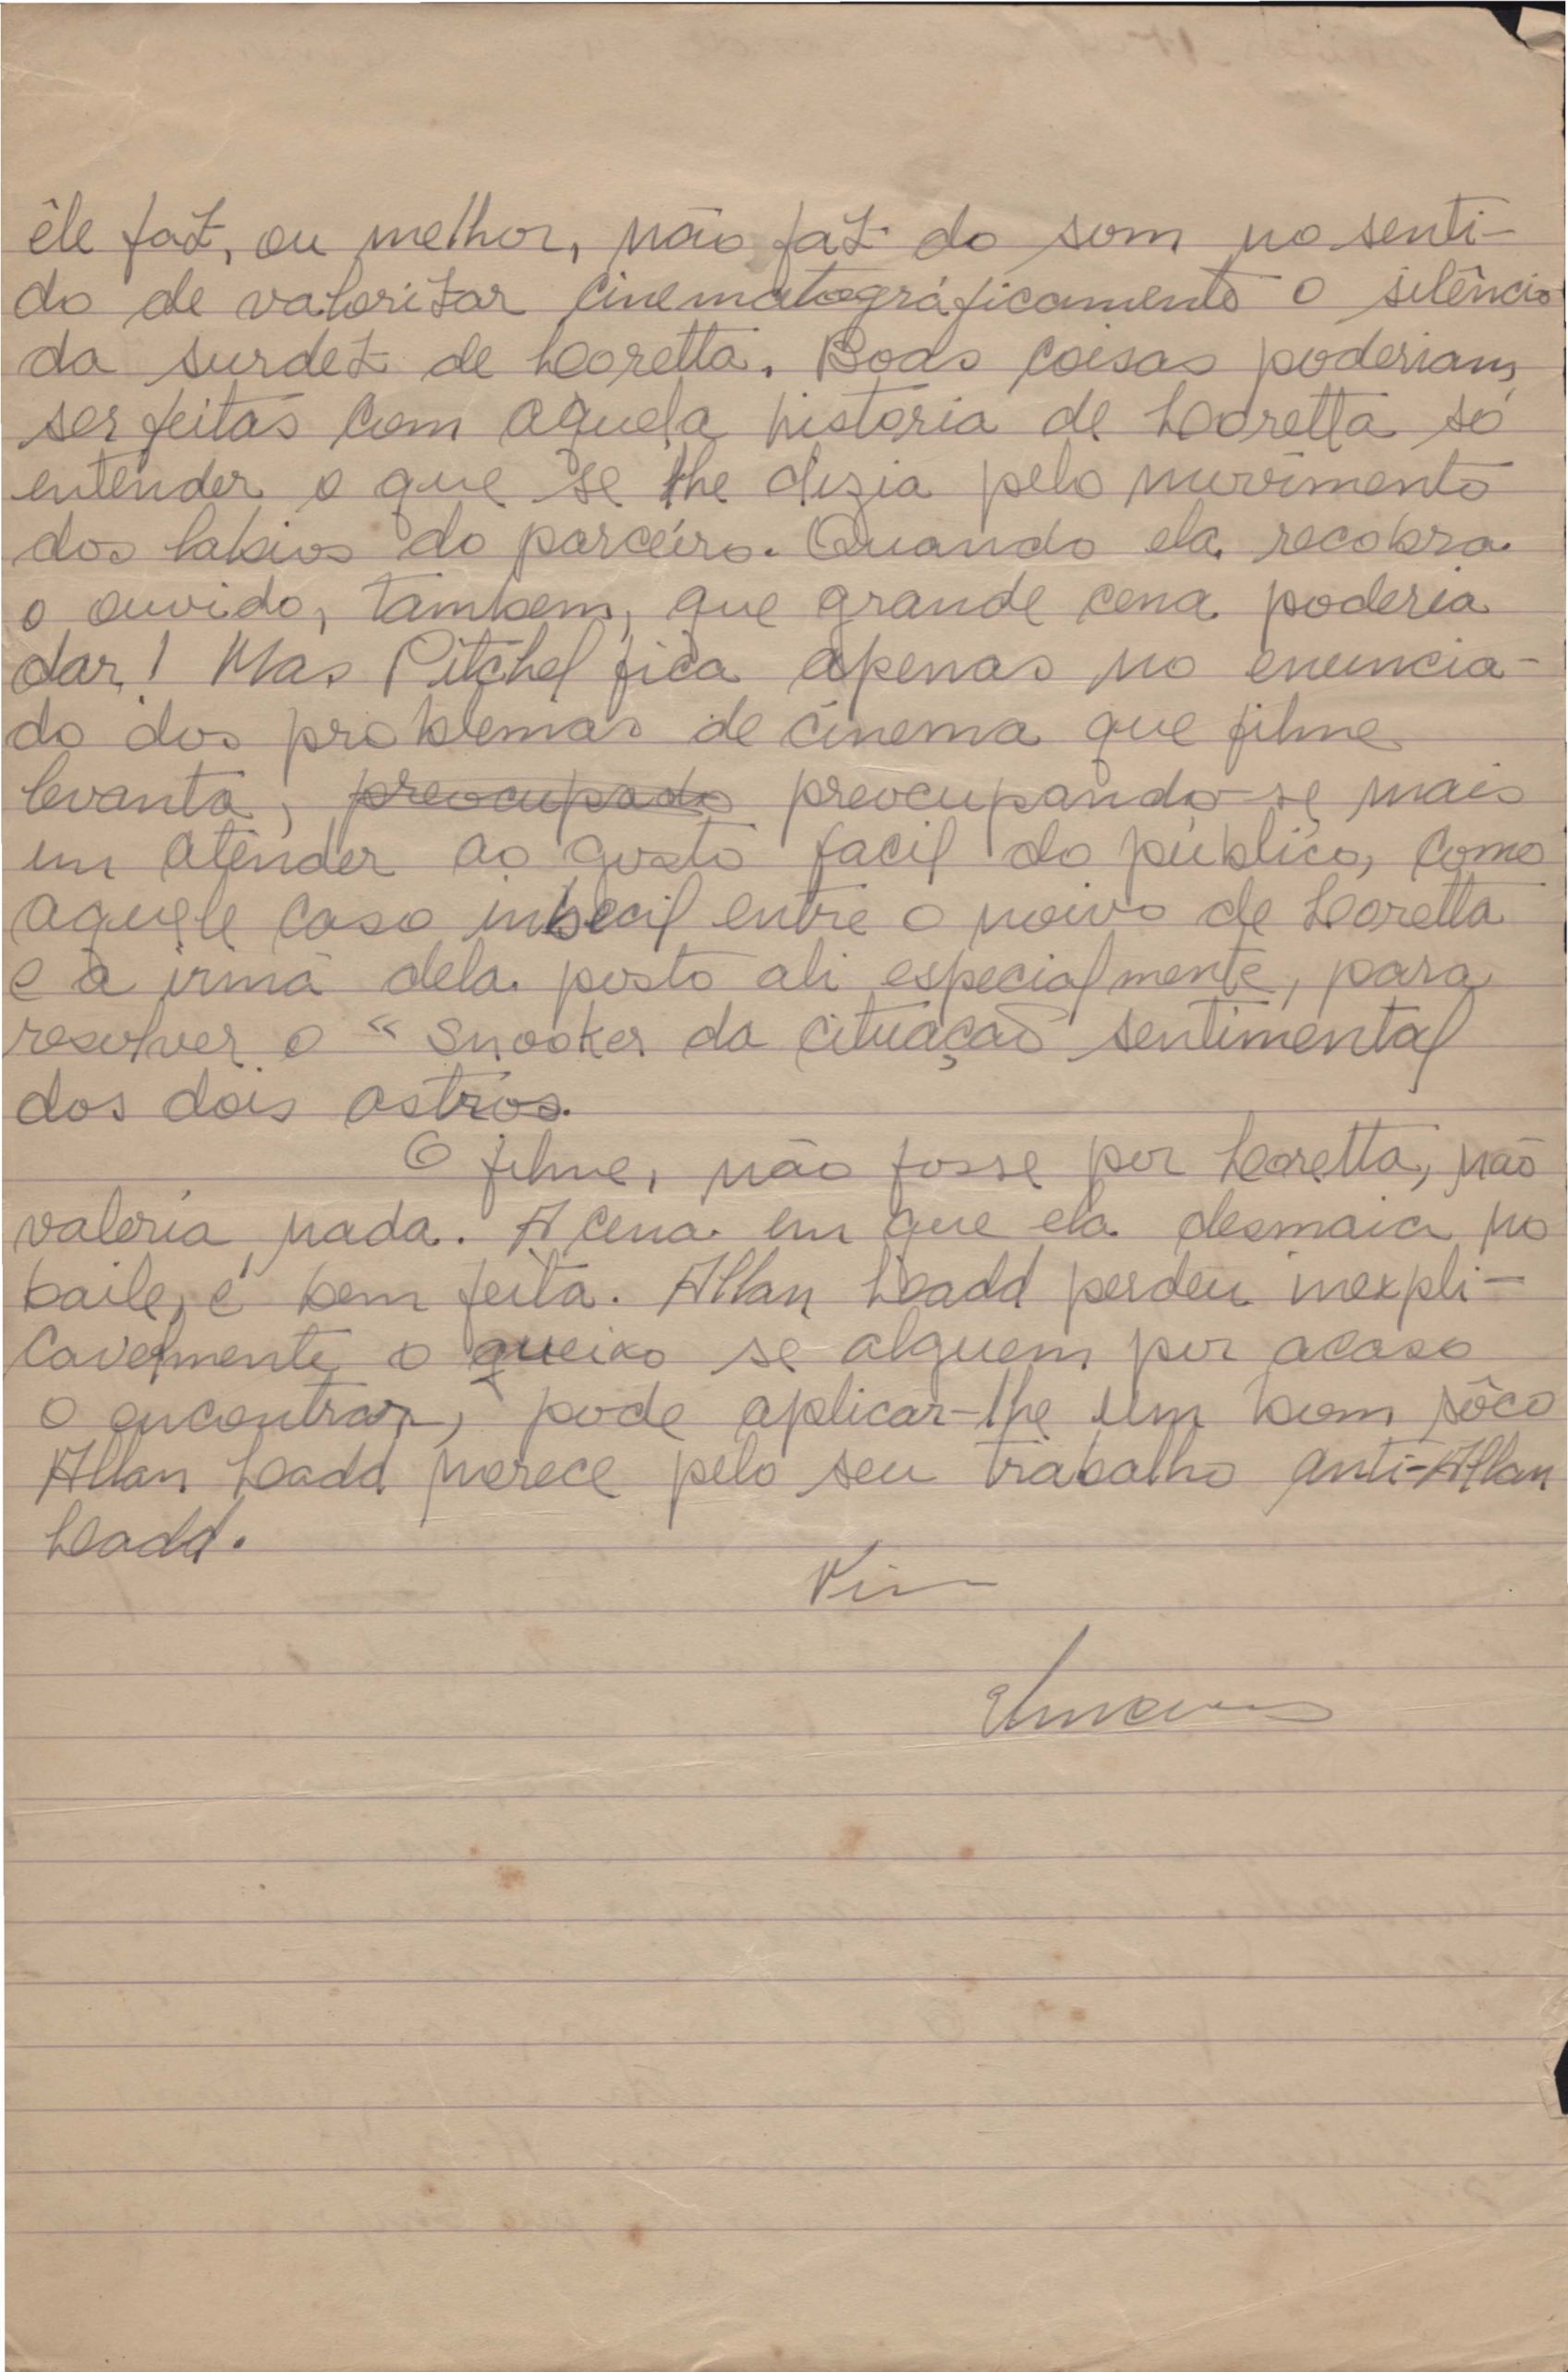 êle faz, ou melhor, não faz do som no senti-
do de valorizar cinematográficamente o silêncio
da surdez de Loretta. Boas coisas poderiam
ser feitas com aquela historia de Loretta só
entender o que se lhe dizia pelo movimento
dos labios do parceiro. Quando ela recobra
o ouvido, tambem, que grande cena poderia
dar! Mas Pitchel fica apenas no enuncia-
do dos problemas de cinema que filme
levanta, preocupado preocupando-se mais
em atender ao gosto facil do público, como
aquele caso imbecil entre o noivo de Loretta
e a irmã dela posto ali especialmente, para
resolver o "Snooker da cituação sentimental
dos dois astros.
O filme, não fosse por Loretta, não
valeria nada. A cena em que ela desmaia no
baile, é bem feita. Allan Ladd perdeu inexpli-
cavelmente o queixo se alguem por acaso
o encontrar, pode aplicar-lhe um bom sôco
Allan Ladd merece pelo seu trabalho anti-Allan
Ladd.